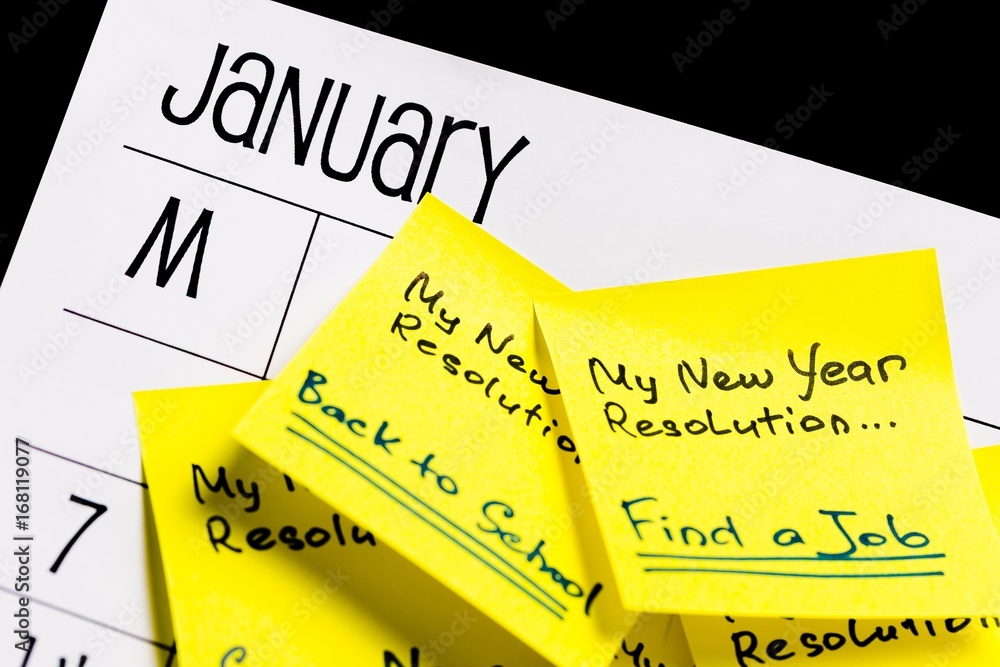 January
M
7
My New
Resolution
Back to School
My New Year
Resolution...
Find a Job
My
Resolu
My
Resolution
Adobe Stock | #168119077